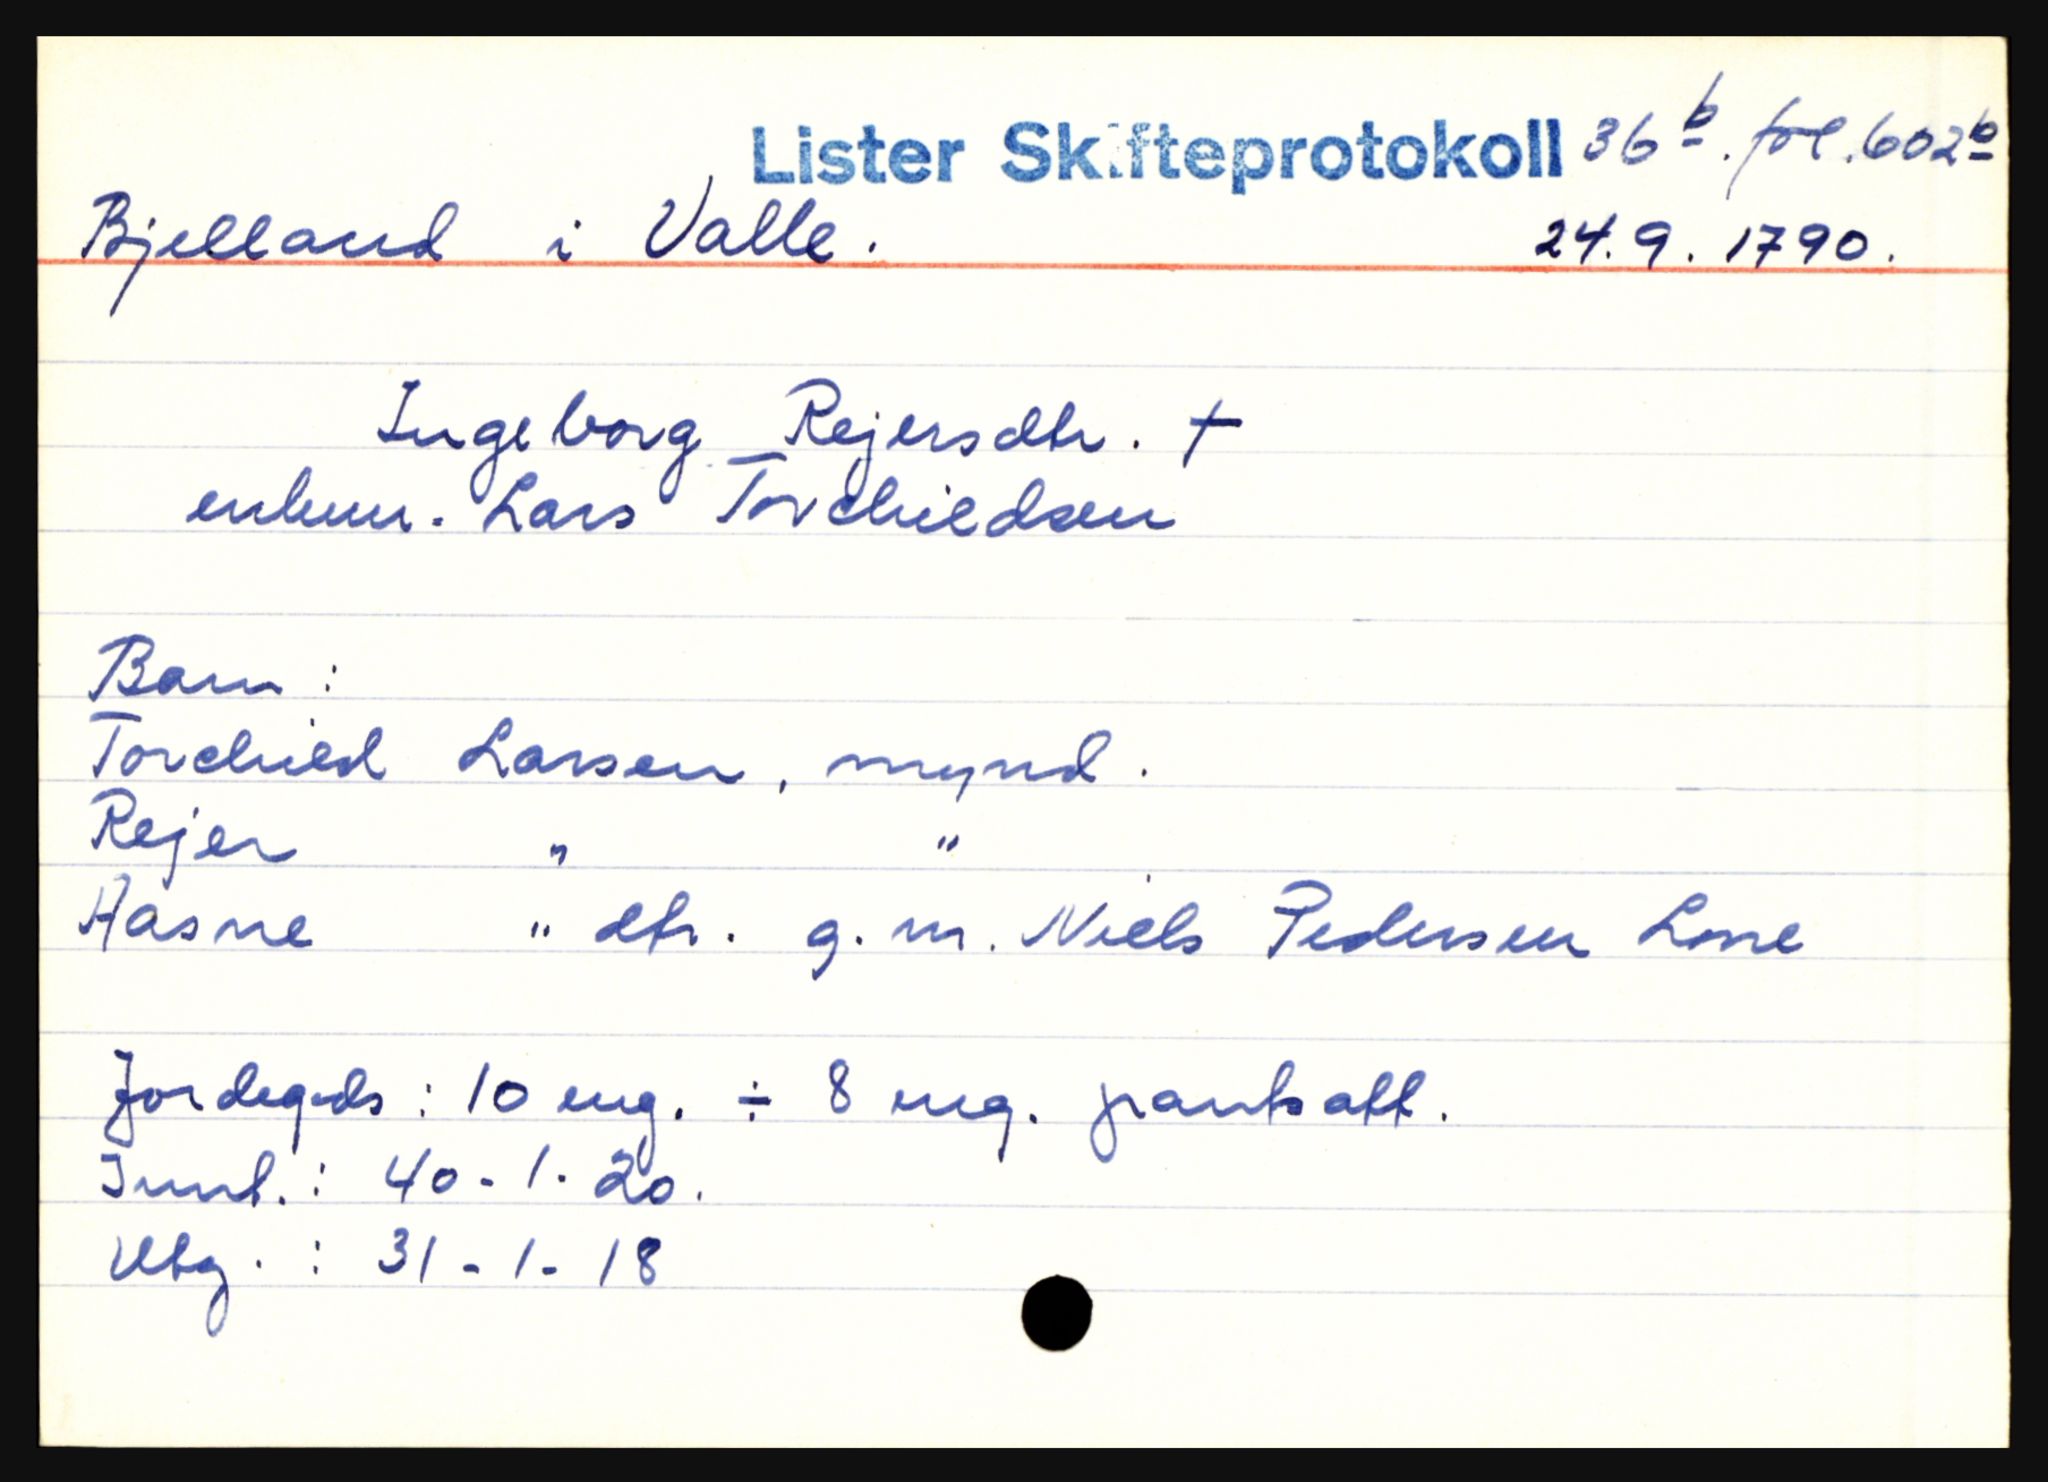 Lister Skifteprotokoll 36b. fol. 602b
Bjelland i Valle. 24.9.1790.
Ingeborg Rejersdtr. †
enkem. Lars Torchieldsen
Barn:
Torchield Larsen, mynd.
Rejer " "
Aasne " dtr. g. m. Niels Pedersen Lone
Jordegods: 10 eng. ÷ 8 eng. pantsatt.
Innt.: 40-1-20.
Utg.: 31-1-18